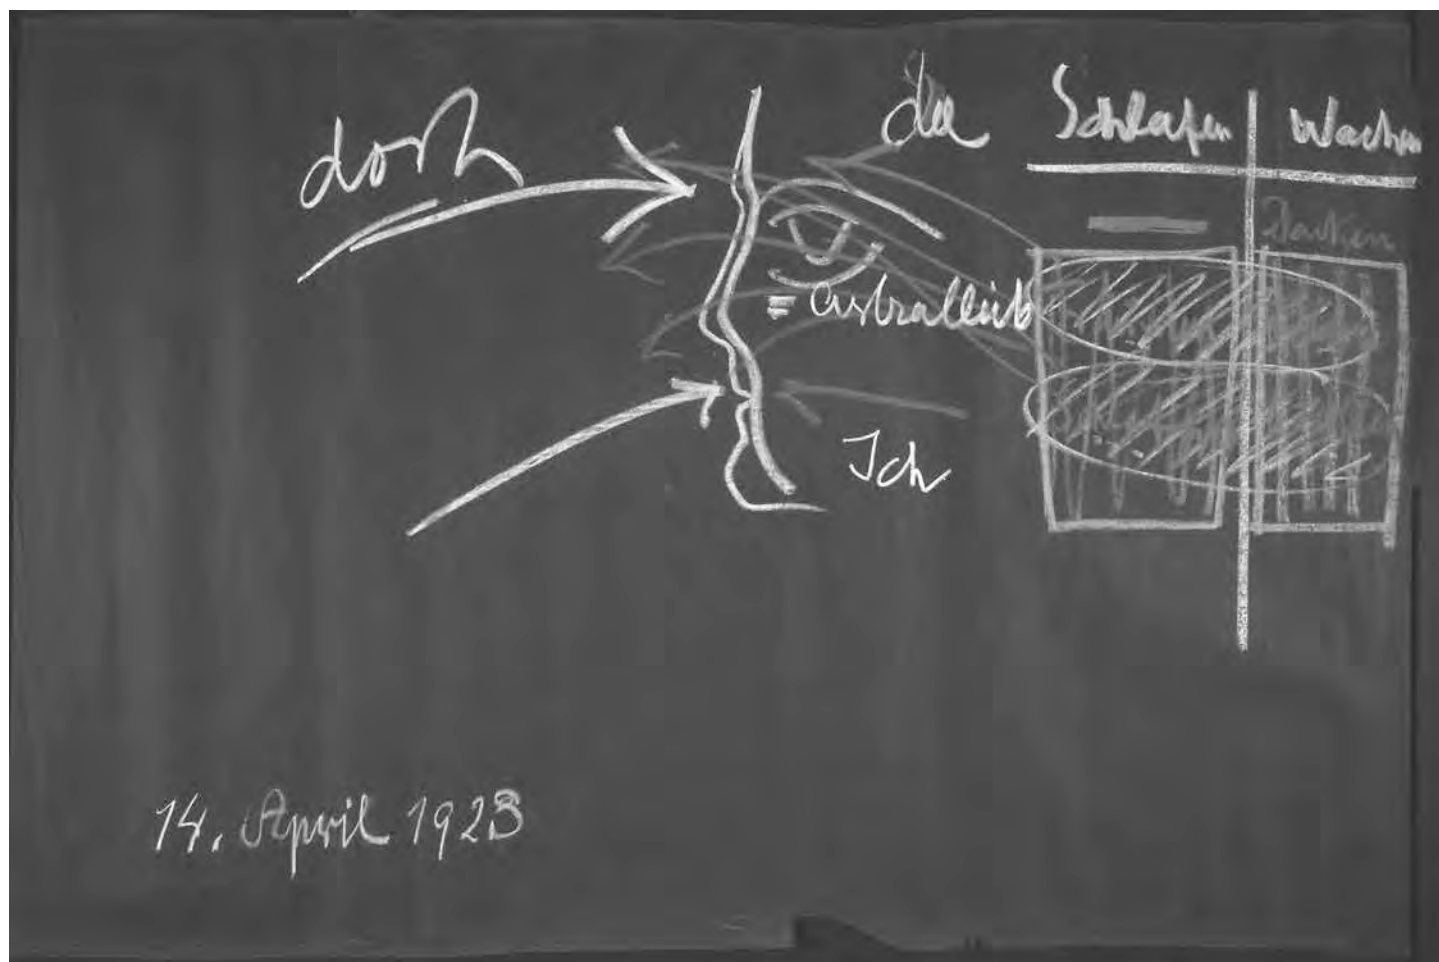 dort
da
Schlafen Wachen
Denken
= Astralleib
Ich
14. April 1923